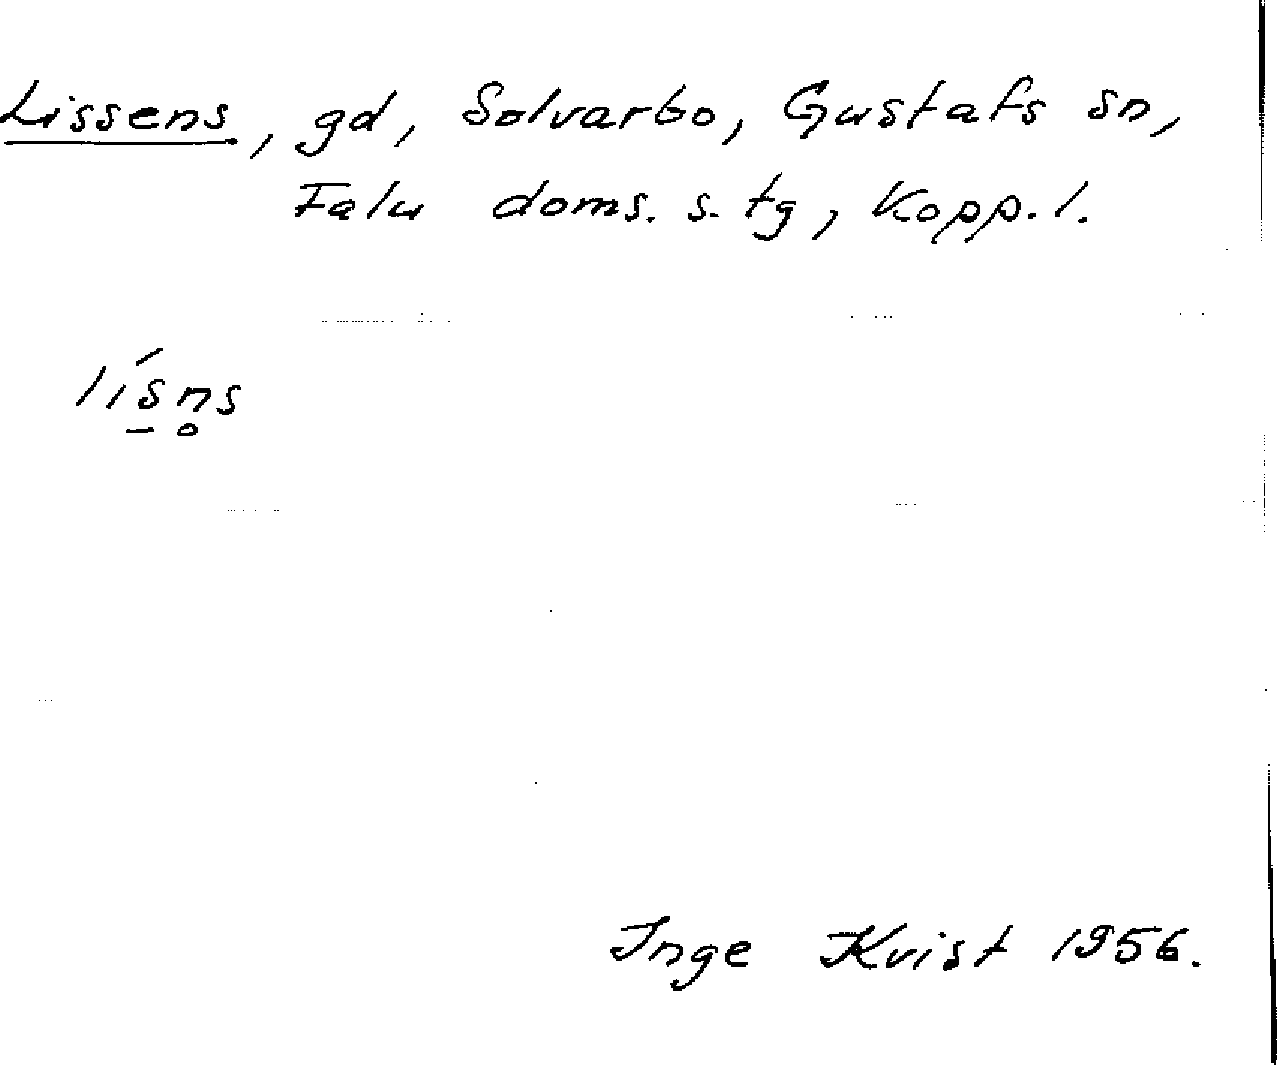 Lissens, gd, Solvarbo, Gustafs sn,
Falu doms. s. tg, Kopp. l.
lís̱n̥s
Inge Kvist 1956.